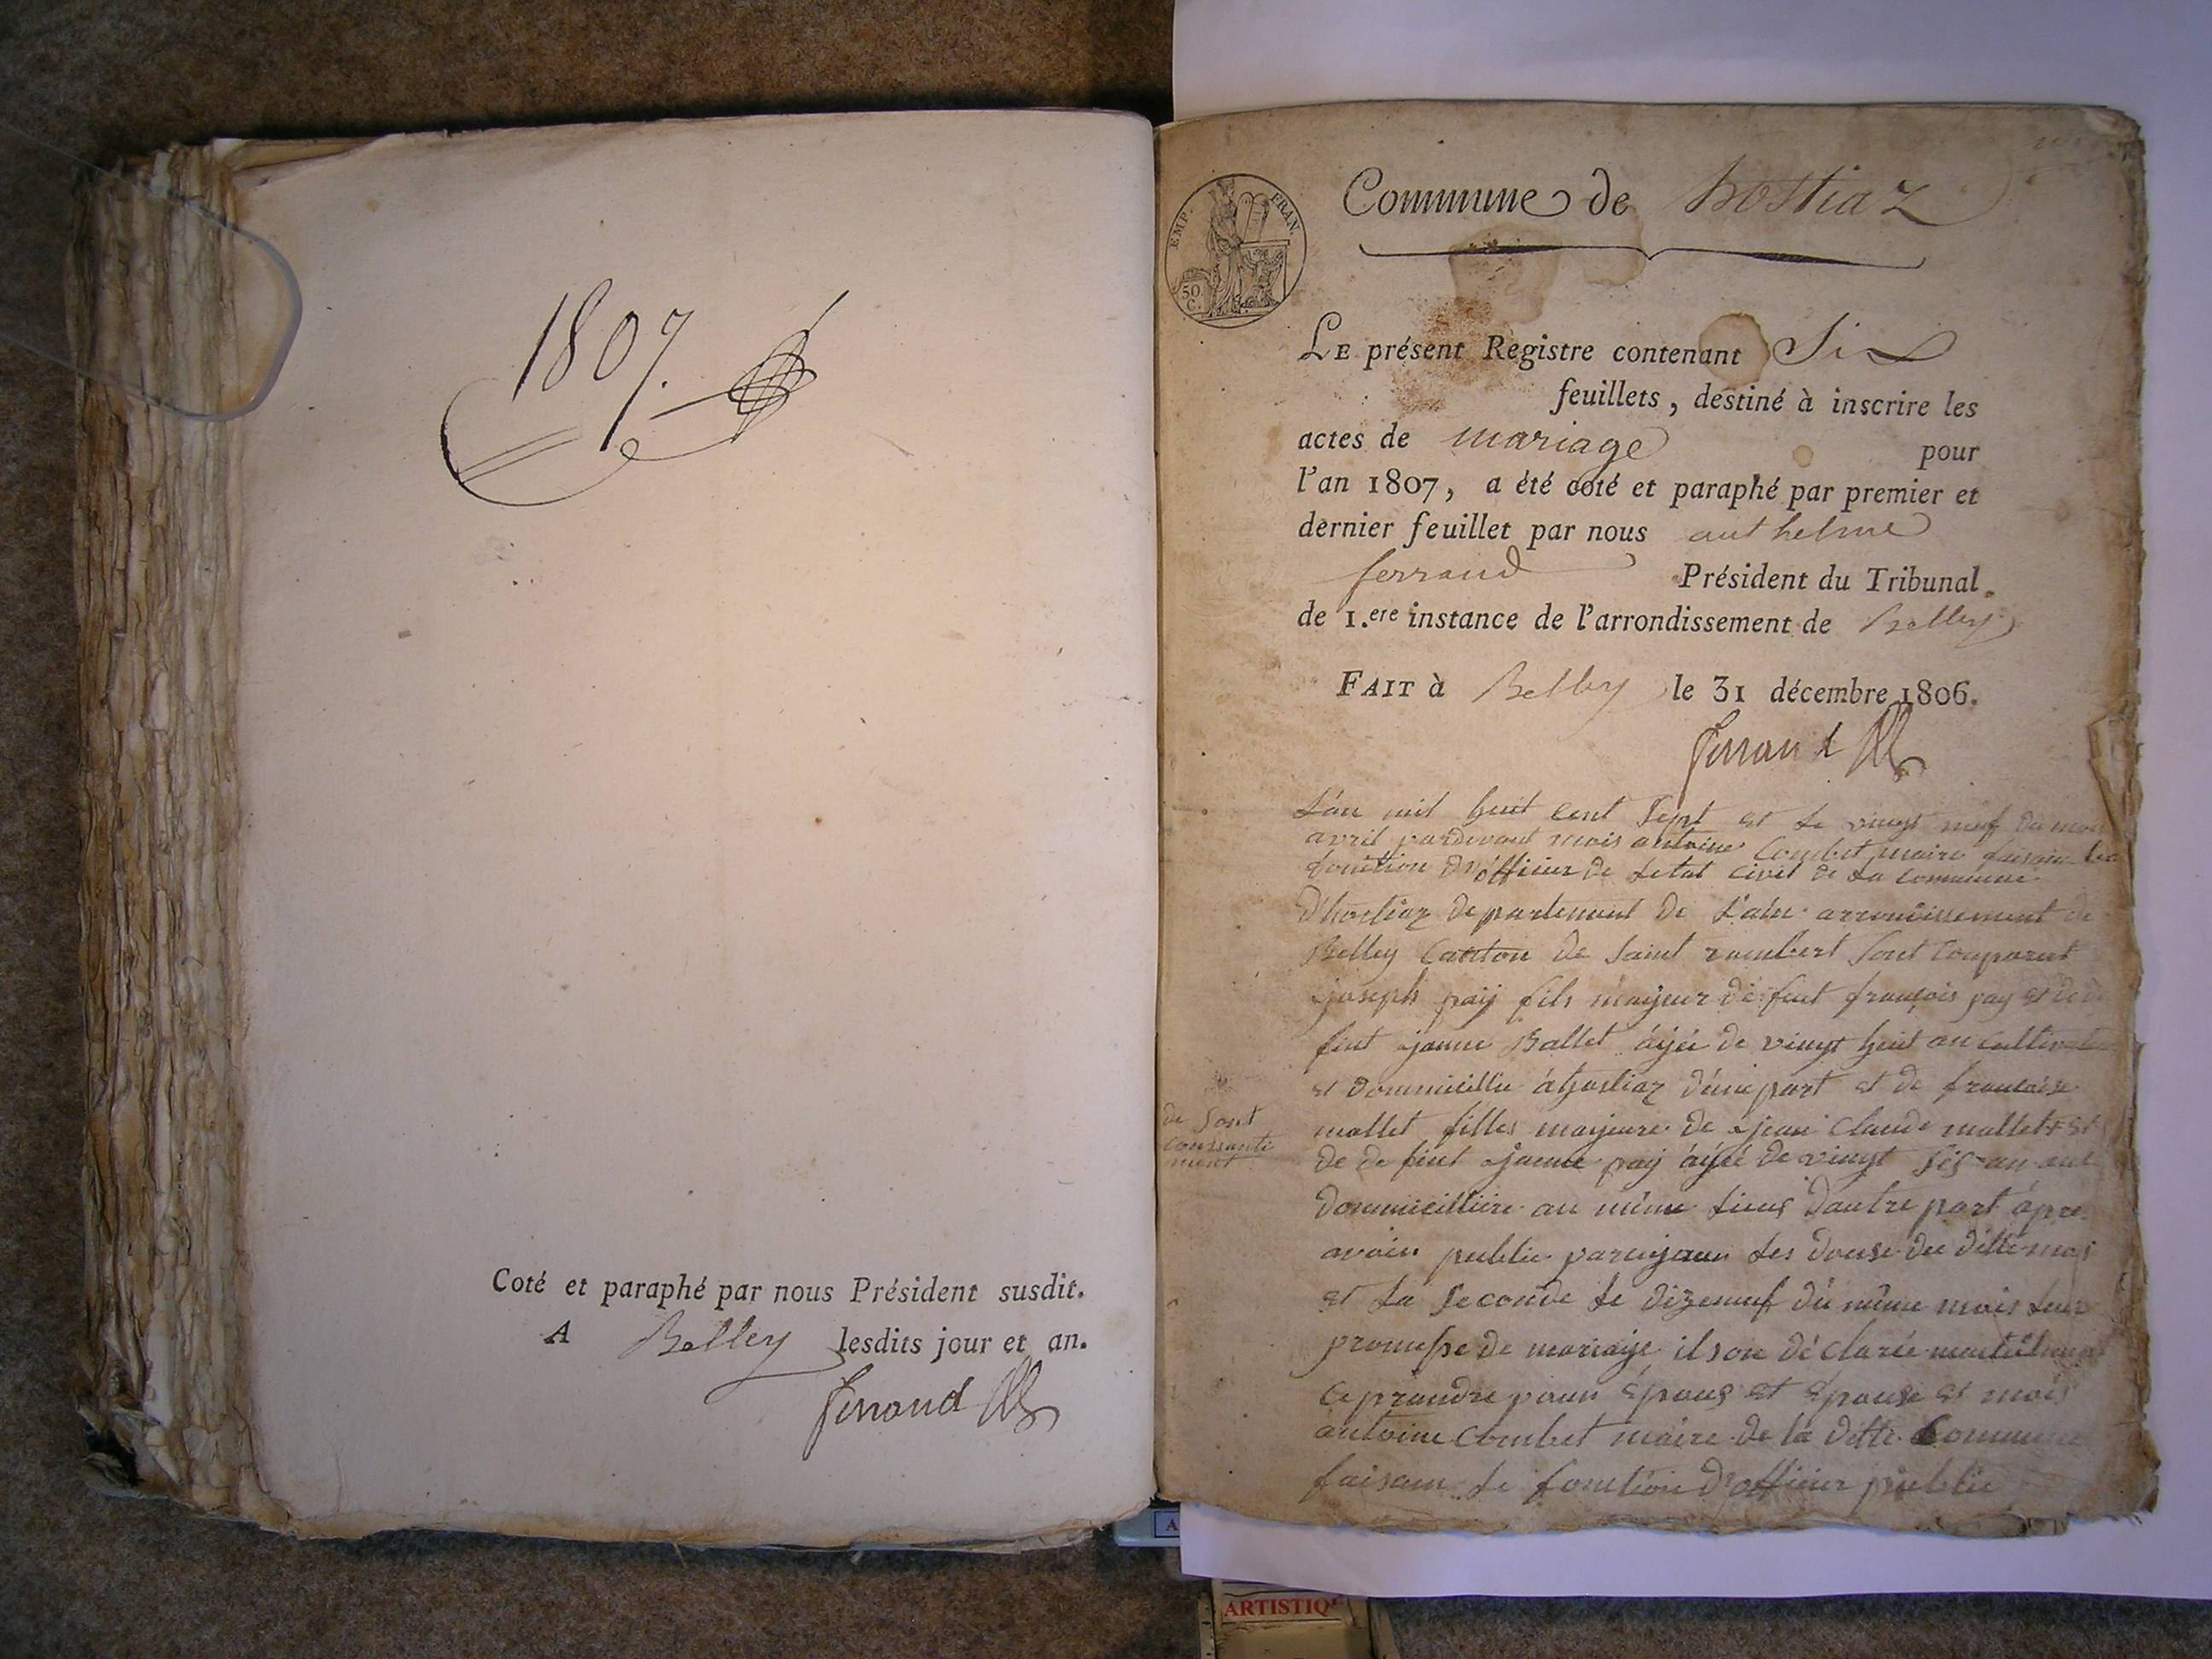 1807.
Coté et paraphé par nous Président susdit.
A Belley lesdits jour et an.
ferrand
EMP. FRAN.
50
C.
Commune de hostiaz
LE présent Registre contenant Six
feuillets, destiné à inscrire les
actes de mariage pour
l'an 1807, a été coté et paraphé par premier et
dernier feuillet par nous anthelme
ferrand Président du Tribunal
de 1.ere instance de l'arrondissement de Belley
FAIT à Belley le 31 décembre 1806.
ferrand
L'an mil huit cent Sept et le vingt neuf du mois
avril pardevant mois antoine Combet maire faisain les
fonction d'officier de Letat Civil de La Commune
D'hostiaz departement de L'ain arrondissement de
Belley Canton de Saint rambert Sont Comparut
joseph pay fils majeur de feut françois pay et de
feut janne Ballet âjée de vingt huit an Cultivateur
et dommicillie à hostiaz d'une part et de francoise
mallet filles majeure de jean Claude mallet + et
de Sont
Conssanti
ment
de de feut janne pay âjée de vingt Six an
dommicilliere au même Lieus dautre part âpre
avoir publie les douse du ditte mois
et La Seconde Le dizeneuf du même mois Leur
promesse de mariaje il son déclarée
Ce prandre pour Epous et Epouse et mois
antoine Combet maire de la ditte Commune
faisain Le fonction d'officier publie
ARTISTIQ